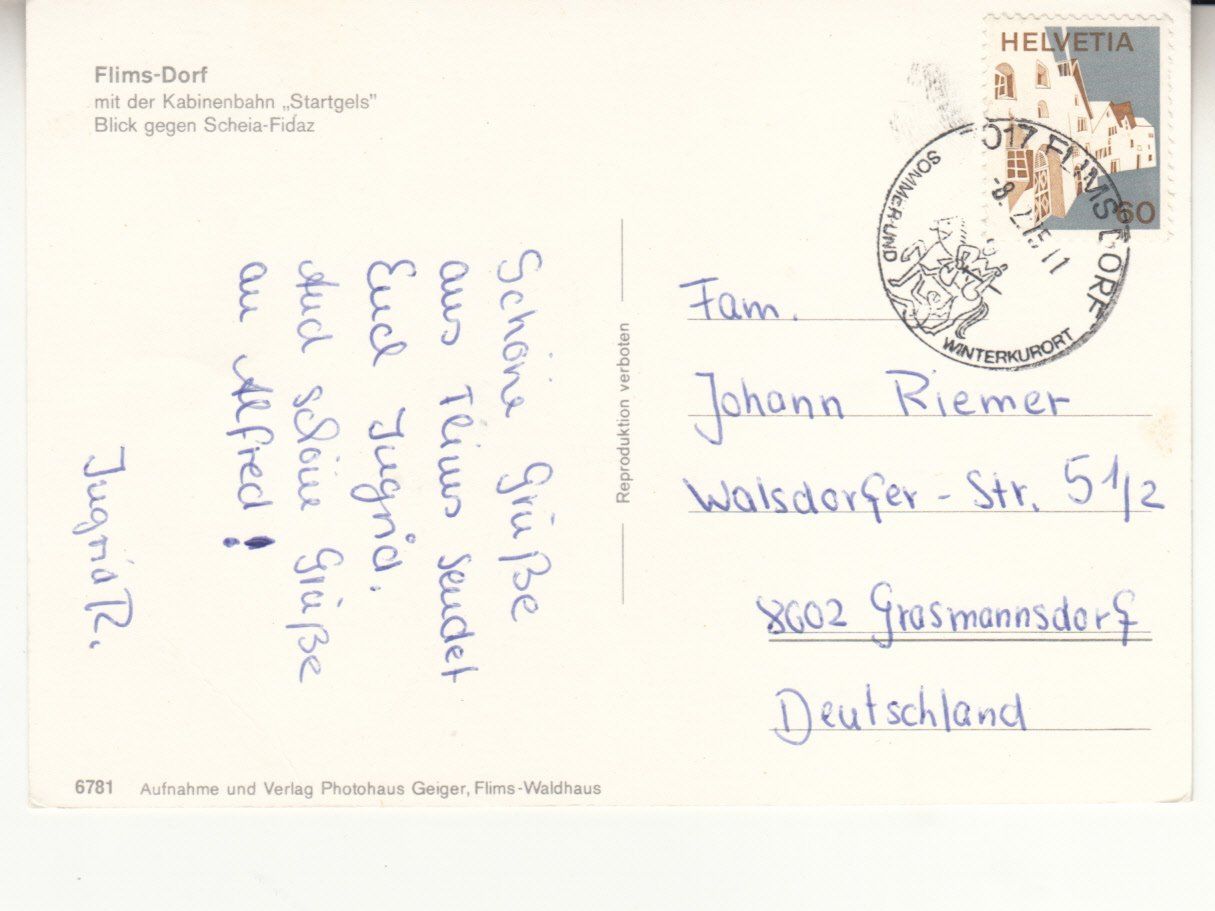 Flims-Dorf
mit der Kabinenbahn „Startgels"
Blick gegen Scheia-Fidaz
HELVETIA
60
7017 FLIMS DORF
SOMMER-UND
WINTERKURORT
Schöne Grüße
aus Flims sendet
Euch Ingrid.
Und schöne Grüße
an Alfred!
Ingrid R.
Reproduktion verboten
Fam.
Johann Riemer
Walsdorfer-Str. 5 1/2
8602 Grasmannsdorf
Deutschland
6781 Aufnahme und Verlag Photohaus Geiger, Flims-Waldhaus